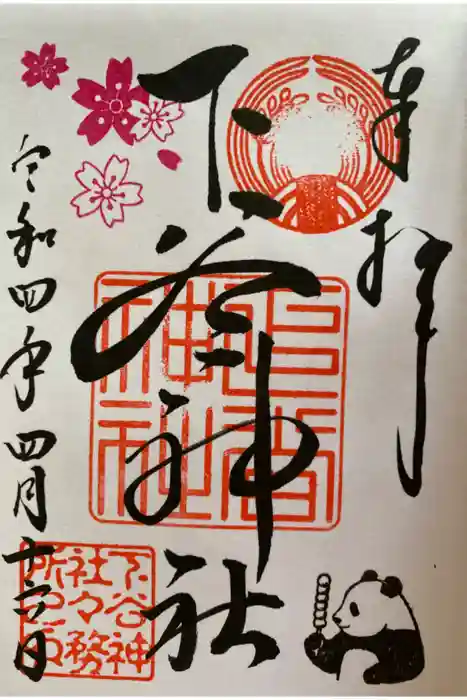 奉拝
下谷神社
下谷神社
令和四年四月十六日
下谷神
社々務
所之印